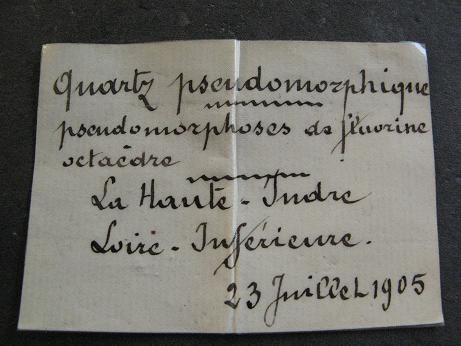 Quartz pseudomorphique
pseudomorphoses de fluorine
octaèdre
La Haute-Indre
Loire-Inférieure.
23 Juillet 1905